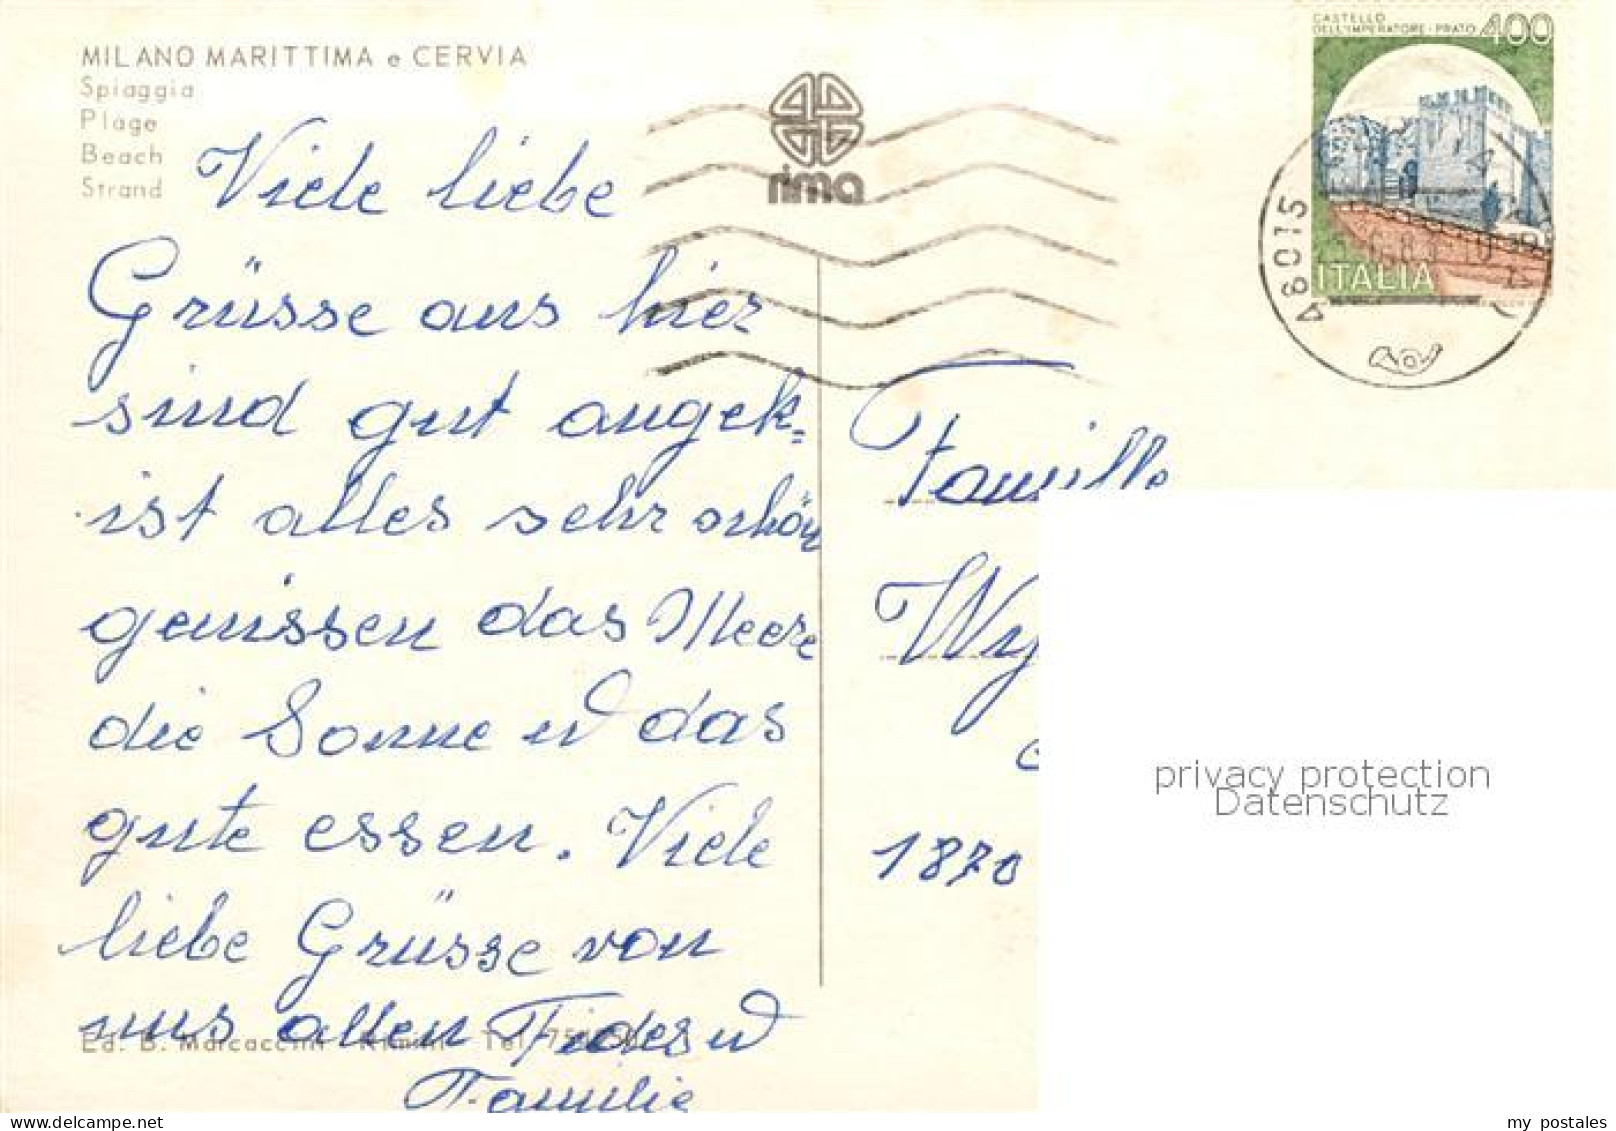 MILANO MARITTIMA e CERVIA
Spiaggia
Plage
Beach
Strand
rima
CASTELLO
DELL'IMPERATORE - PRATO 400
ITALIA
48015
Viele liebe
Grüsse aus hier
sind gut angek=
ist alles sehr schön
genissen das Meere
die Sonne u das
gute essen. Viele
liebe Grüsse von
uns allen Fides u
Familie
Ed. B. Marcaccini Rimini Tel.
Famille
Wy
1870
privacy protection
Datenschutz
my postales